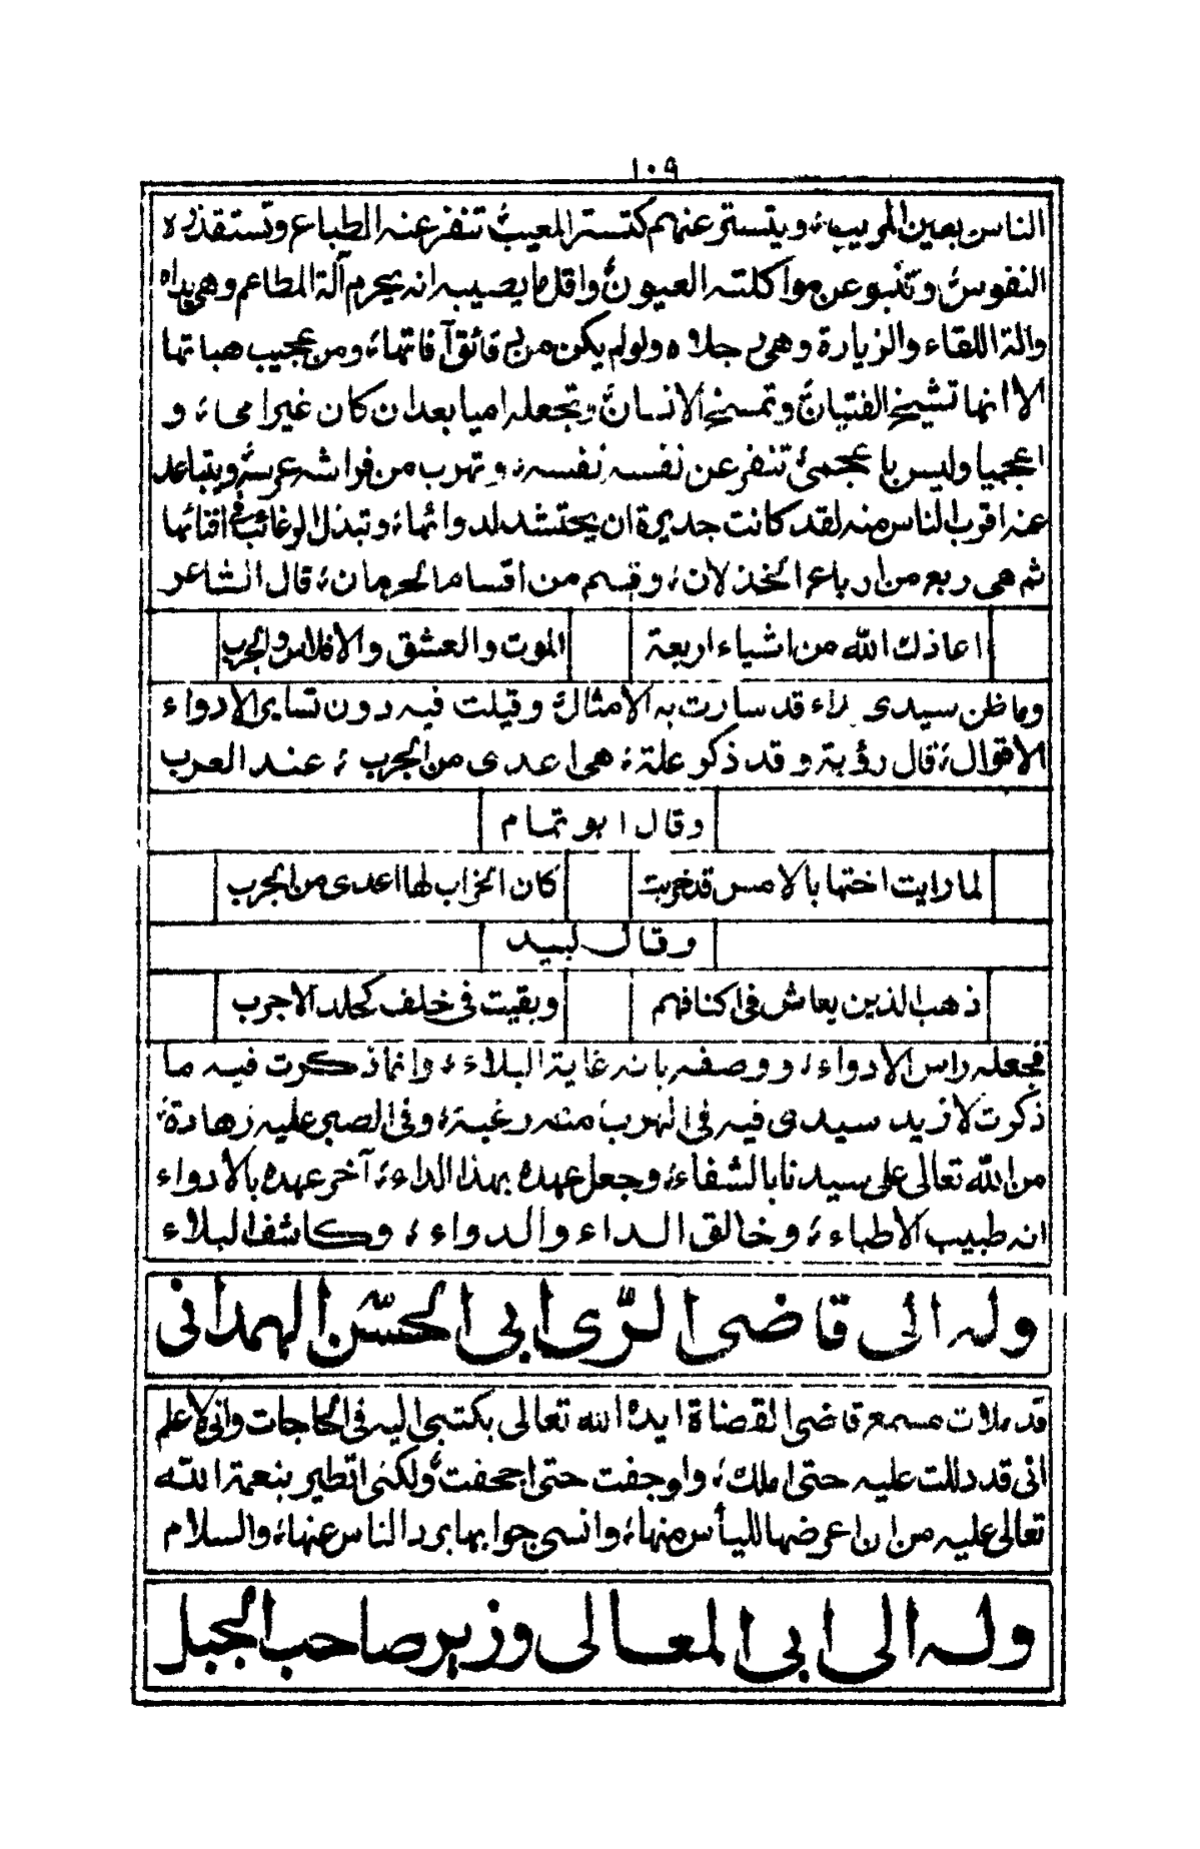 ١٠٩
الناس بعين المريب، ويتستر عنهم كتستر المعيب، تنفر عنه الطباع وتستقذره
النفوس، وتنبو عن مواكلته العيون، واقل ما يصيبه انه يحرم آلة المطاعم وهي يداه
والة اللقاء والزيارة وهي رجلاه ولو لم يكن من دقائق آفاتها، ومن عجيب هباتها
الا انها تشيخ الفتيان، وتمسخ الانسان، وتجعله اميا بعدان كان غير امي، و
اعجميا وليس باعجمي، تنفر عن نفسه نفسه، وتهرب من فراشه عرسه، ويتباعد
عنه اقرب الناس منه لقد كانت جديرة ان يحتشد لدوائها، وتبذل الرغائب في افنائها
ثم هي ربع من ارباع الخذلان، وقسم من اقسام الحرمان، قال الشاعر
اعاذك الله من اشياء اربعة الموت والعشق والافلاس والجرب
وما ظن سيدي بداء قد سارت به الامثال، وقيلت فيه دون تساير الادواء
الاقوال، قال رؤبة وقد ذكر علة، هي اعدى من الجرب، عند العرب
وقال ابو تمام
لما رايت اختها بالامس قد خربت كان الخراب لها اعدى من الجرب
وقال لبيد
ذهب الذين يعاش في اكنافهم وبقيت في خلف كجلد الاجرب
فجعله راس الادواء، ووصفه بانه غاية البلاء، وانما ذكرت فيه ما
ذكرت لازيد سيدي فيه في الهرب منه رغبة، وفي الصبر عليه زهادة،
من الله تعالى على سيدنا بالشفاء، وجعل عهده بهذا الداء، آخر عهده بالادواء
انه طبيب الاطباء، وخالق الداء والدواء، وكاشف البلاء
وله الى قاضى الرّى ابى الحسّن الهمدانى
قد ملات مسمع قاضي القضاة ايده الله تعالى بكتبي اليه في الحاجات واني لاعلم
اني قد دللت عليه حتى املك، واوجفت حتى اجحفت، ولكني اتطير بنعمة الله
تعالى عليه من ان اعرضها لليأس منها، وانسي جوابها برد الناس عنها، والسلام
وله الى ابى المعالى وزير صاحب الجبل